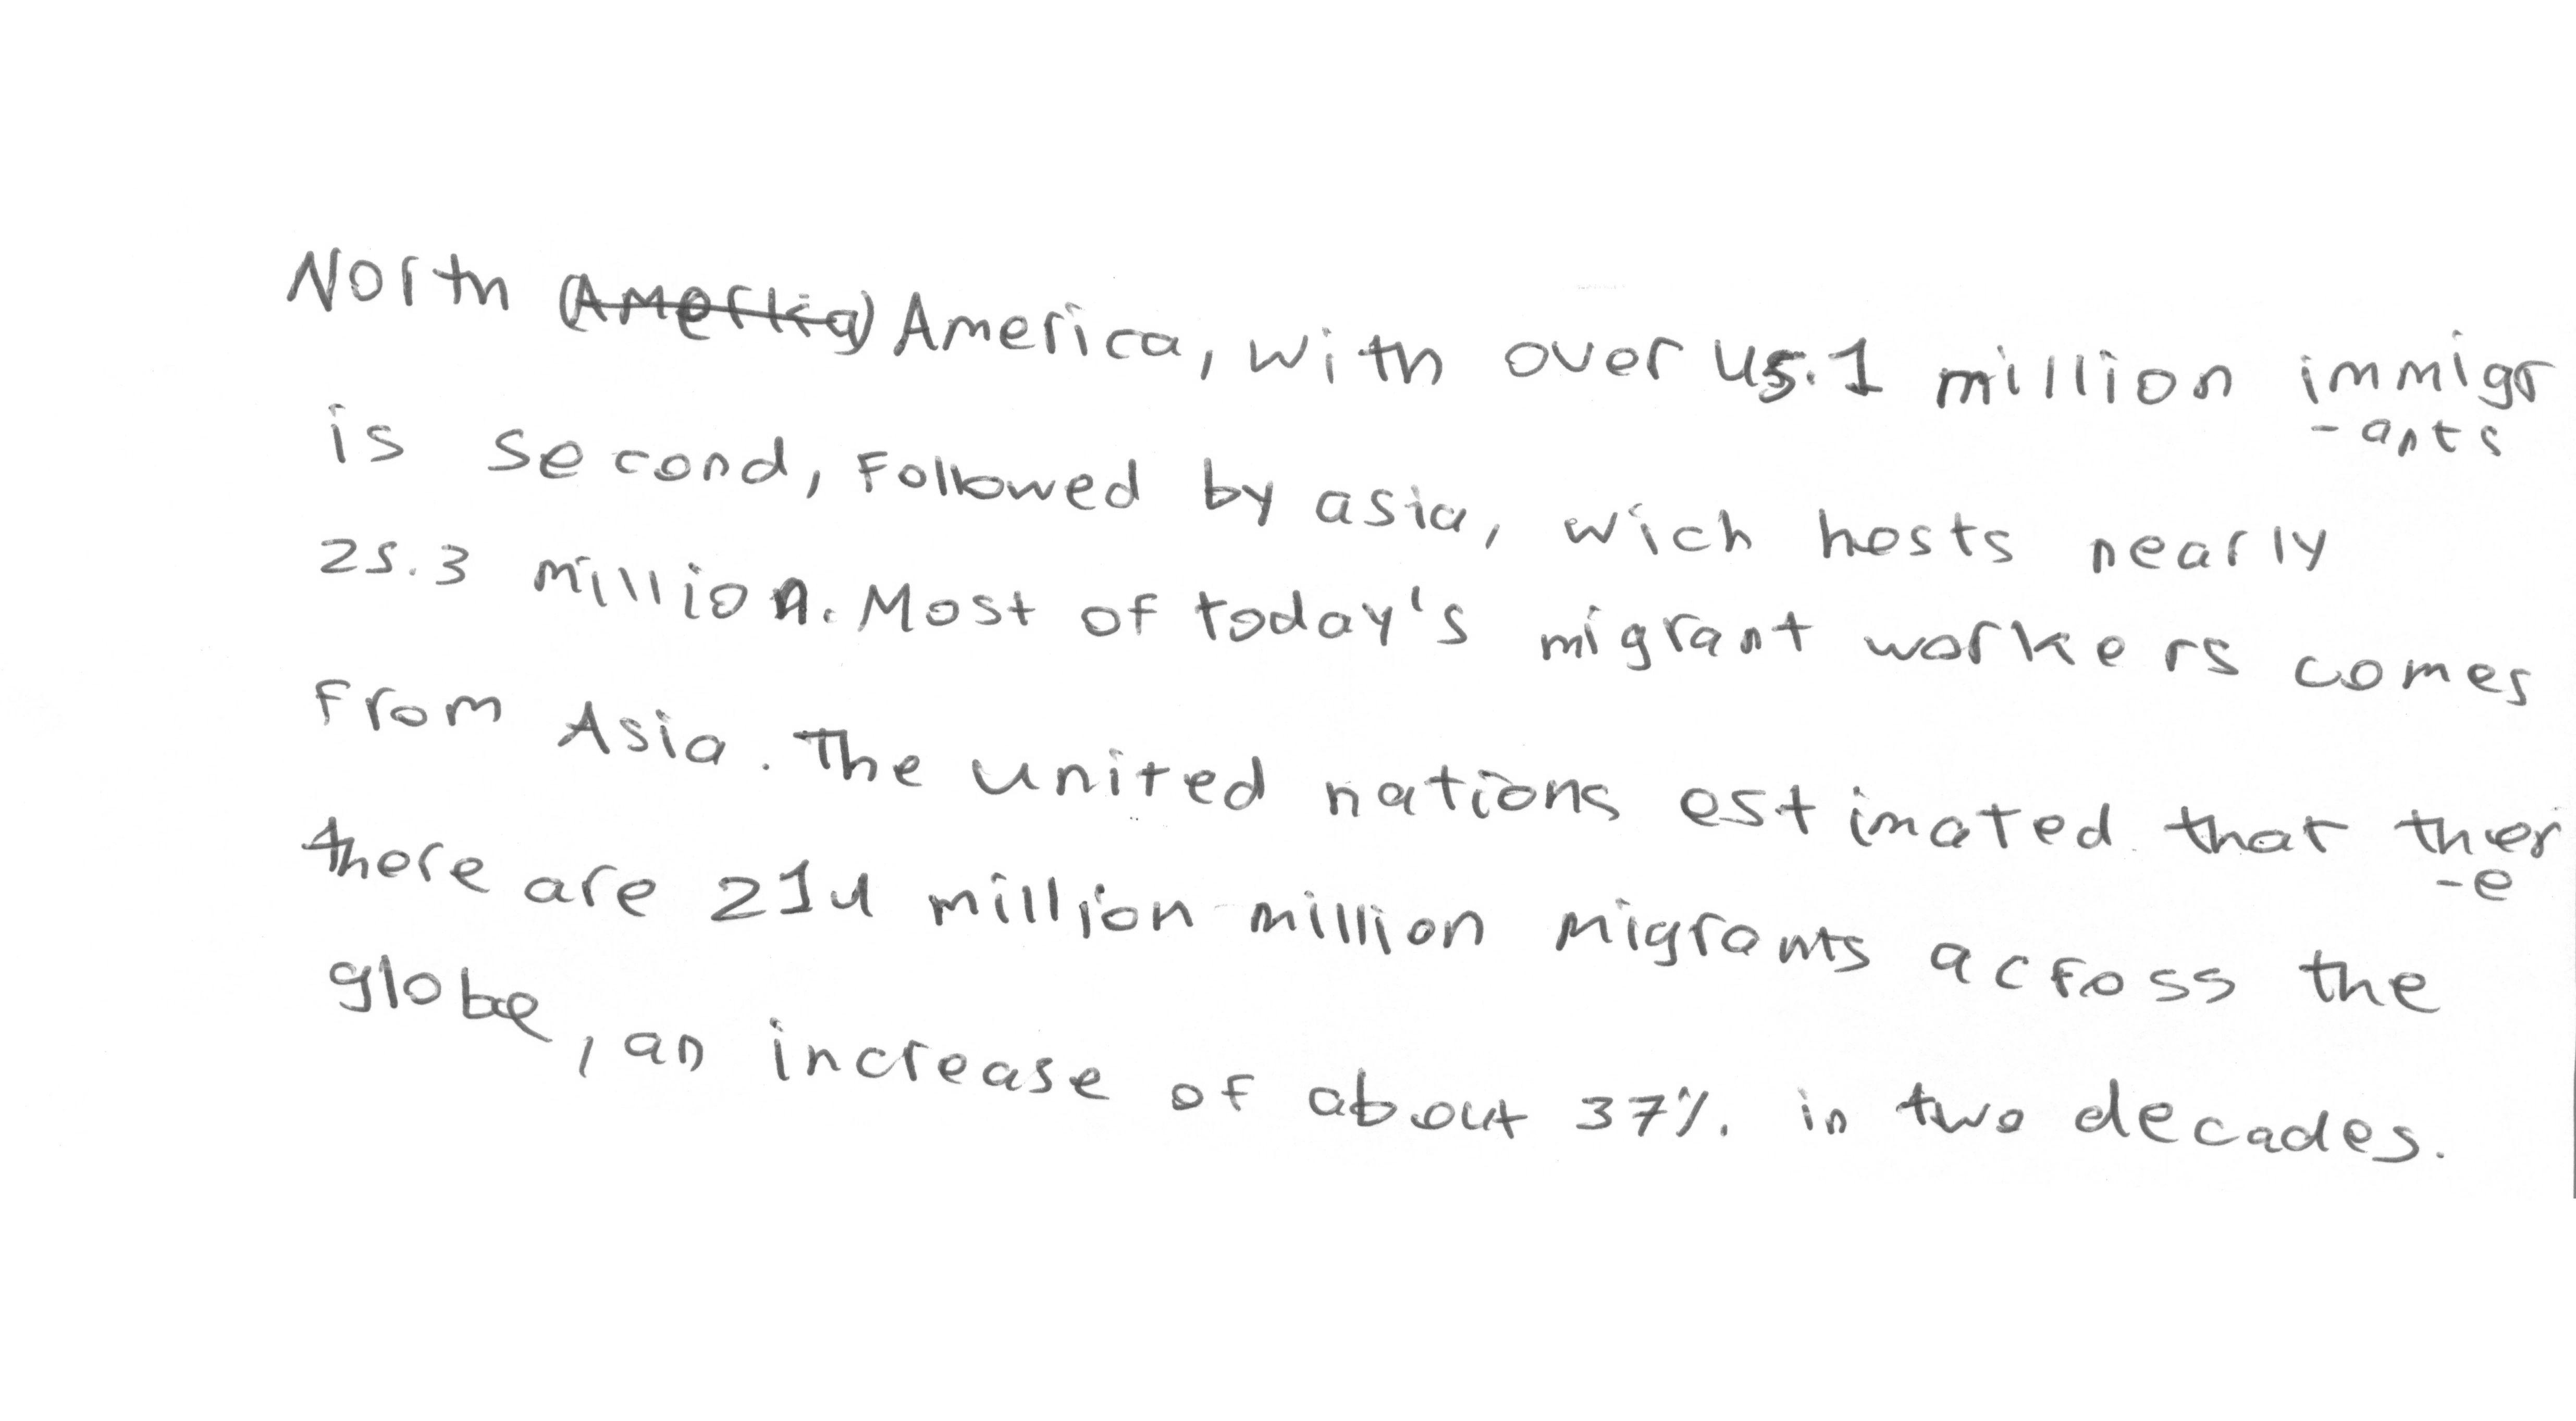 North (Amerkia) America, with over 45.1 million immigr
-ants
is second, Followed by asia, wich hosts nearly
25.3 million. Most of today's migrant workers comes
From Asia. The united nations estimated that ther
-e
there are 214 million million migrants across the
globe, an increase of about 37% in two decades.